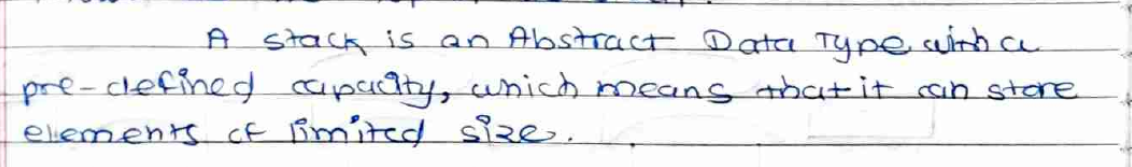 A stack is an Abstract Data Type with a
pre-defined capacity, which means that it can store
elements of limited size.